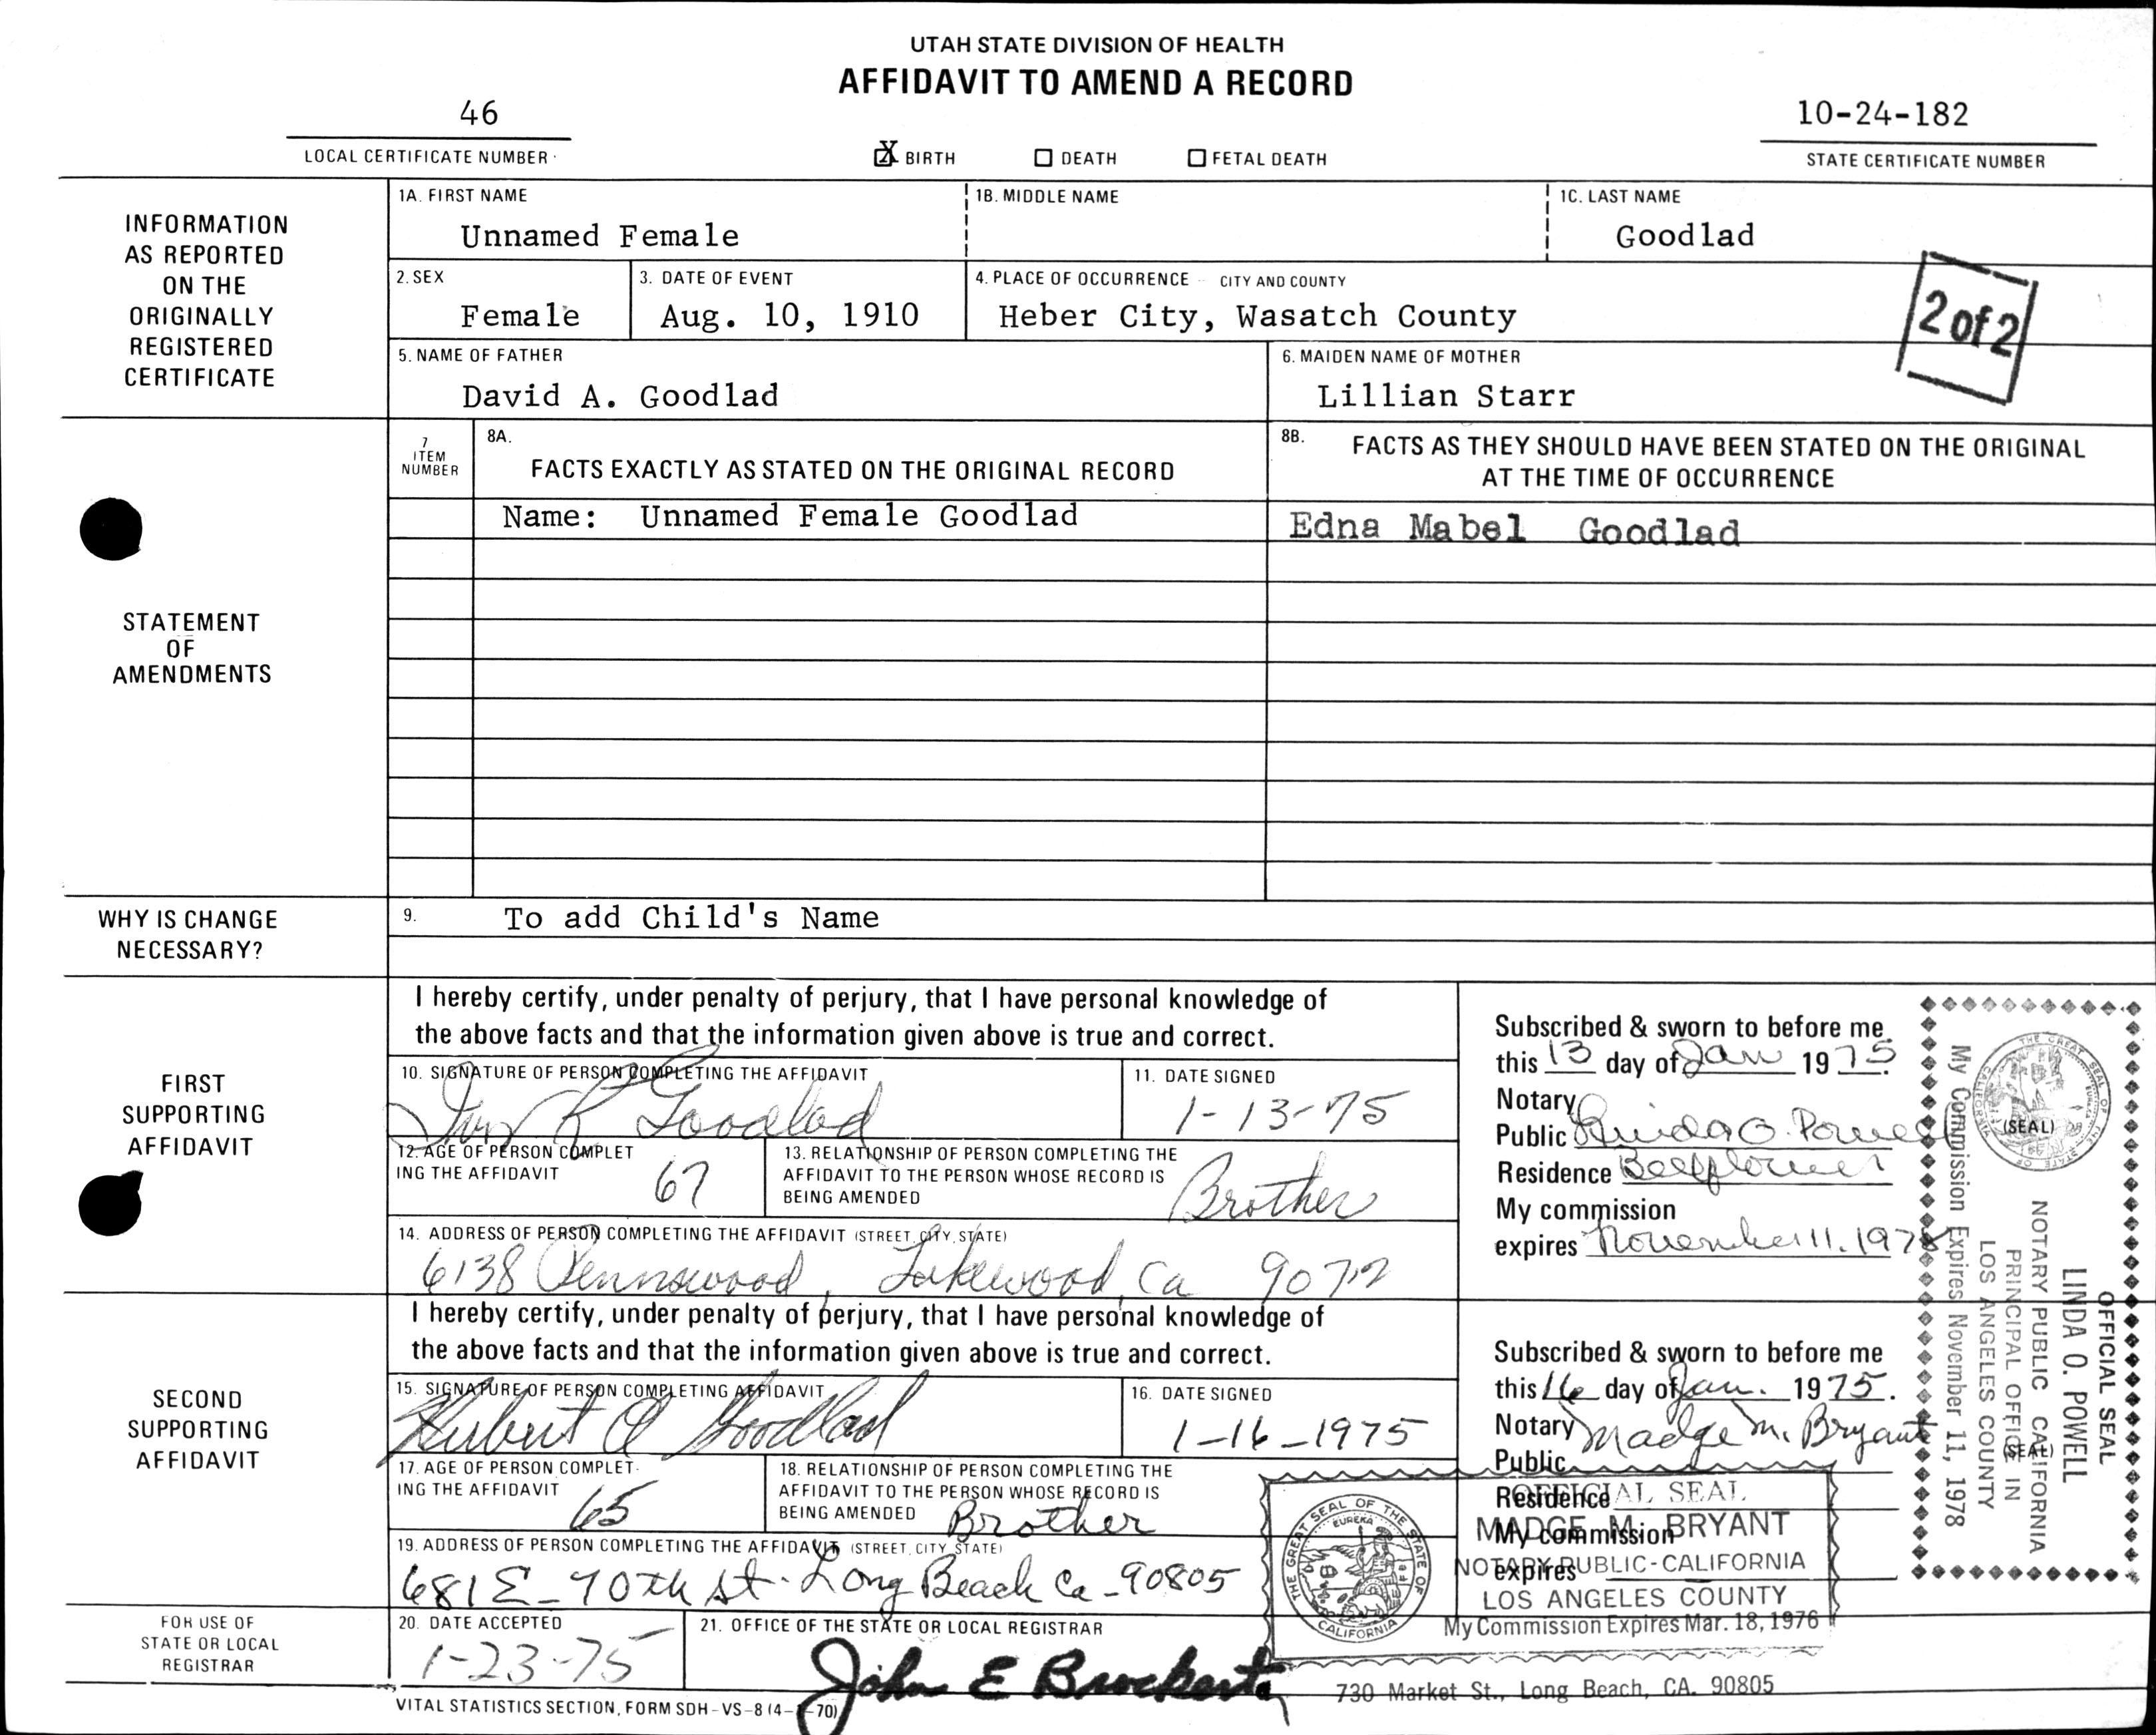 UTAH STATE DIVISION OF HEALTH
AFFIDAVIT TO AMEND A RECORD
46
10-24-182
LOCAL CERTIFICATE NUMBER
X BIRTH
DEATH
FETAL DEATH
STATE CERTIFICATE NUMBER
INFORMATION
AS REPORTED
ON THE
ORIGINALLY
REGISTERED
CERTIFICATE
1A. FIRST NAME
Unnamed Female
1B. MIDDLE NAME
1C. LAST NAME
Goodlad
2. SEX
Female
3. DATE OF EVENT
Aug. 10, 1910
4. PLACE OF OCCURRENCE - CITY AND COUNTY
Heber City, Wasatch County
2 of 2
5. NAME OF FATHER
David A. Goodlad
6. MAIDEN NAME OF MOTHER
Lillian Starr
STATEMENT
OF
AMENDMENTS
7
ITEM
NUMBER
8A.
FACTS EXACTLY AS STATED ON THE ORIGINAL RECORD
8B.
FACTS AS THEY SHOULD HAVE BEEN STATED ON THE ORIGINAL
AT THE TIME OF OCCURRENCE
Name: Unnamed Female Goodlad
Edna Mabel Goodlad
WHY IS CHANGE
NECESSARY?
9.
To add Child's Name
FIRST
SUPPORTING
AFFIDAVIT
I hereby certify, under penalty of perjury, that I have personal knowledge of
the above facts and that the information given above is true and correct.
10. SIGNATURE OF PERSON COMPLETING THE AFFIDAVIT
R Goodlad
11. DATE SIGNED
1-13-75
12. AGE OF PERSON COMPLET
ING THE AFFIDAVIT
67
13. RELATIONSHIP OF PERSON COMPLETING THE
AFFIDAVIT TO THE PERSON WHOSE RECORD IS
BEING AMENDED
Brother
14. ADDRESS OF PERSON COMPLETING THE AFFIDAVIT (STREET, CITY, STATE)
6138 Pennswood, Lakewood, Ca 90712
Subscribed & sworn to before me
this 13 day of Jan 1975.
Notary
Public Linda O. Powell
(SEAL)
Residence Bellflower
My commission
expires November 11, 1978
THE GREAT SEAL OF THE STATE OF CALIFORNIA
OFFICIAL SEAL
LINDA O. POWELL
NOTARY PUBLIC CALIFORNIA
PRINCIPAL OFFICE IN
LOS ANGELES COUNTY
My Commission Expires November 11, 1978
SECOND
SUPPORTING
AFFIDAVIT
I hereby certify, under penalty of perjury, that I have personal knowledge of
the above facts and that the information given above is true and correct.
15. SIGNATURE OF PERSON COMPLETING AFFIDAVIT
Hubert A Goodlad
16. DATE SIGNED
1-16-1975
17. AGE OF PERSON COMPLET-
ING THE AFFIDAVIT
65
18. RELATIONSHIP OF PERSON COMPLETING THE
AFFIDAVIT TO THE PERSON WHOSE RECORD IS
BEING AMENDED
Brother
19. ADDRESS OF PERSON COMPLETING THE AFFIDAVIT (STREET, CITY, STATE)
681 E_70th St. Long Beach Ca_90805
Subscribed & sworn to before me
this 16 day of Jan. 1975.
Notary Madge M. Bryant
Public
(SEAL)
Residence
My commission
expires
THE GREAT SEAL OF THE STATE OF CALIFORNIA
EUREKA
OFFICIAL SEAL
MADGE M. BRYANT
NOTARY PUBLIC-CALIFORNIA
LOS ANGELES COUNTY
My Commission Expires Mar. 18, 1976
730 Market St., Long Beach, CA. 90805
FOR USE OF
STATE OR LOCAL
REGISTRAR
20. DATE ACCEPTED
1-23-75
21. OFFICE OF THE STATE OR LOCAL REGISTRAR
John E Brockert
VITAL STATISTICS SECTION, FORM SDH-VS-8 (4- -70)